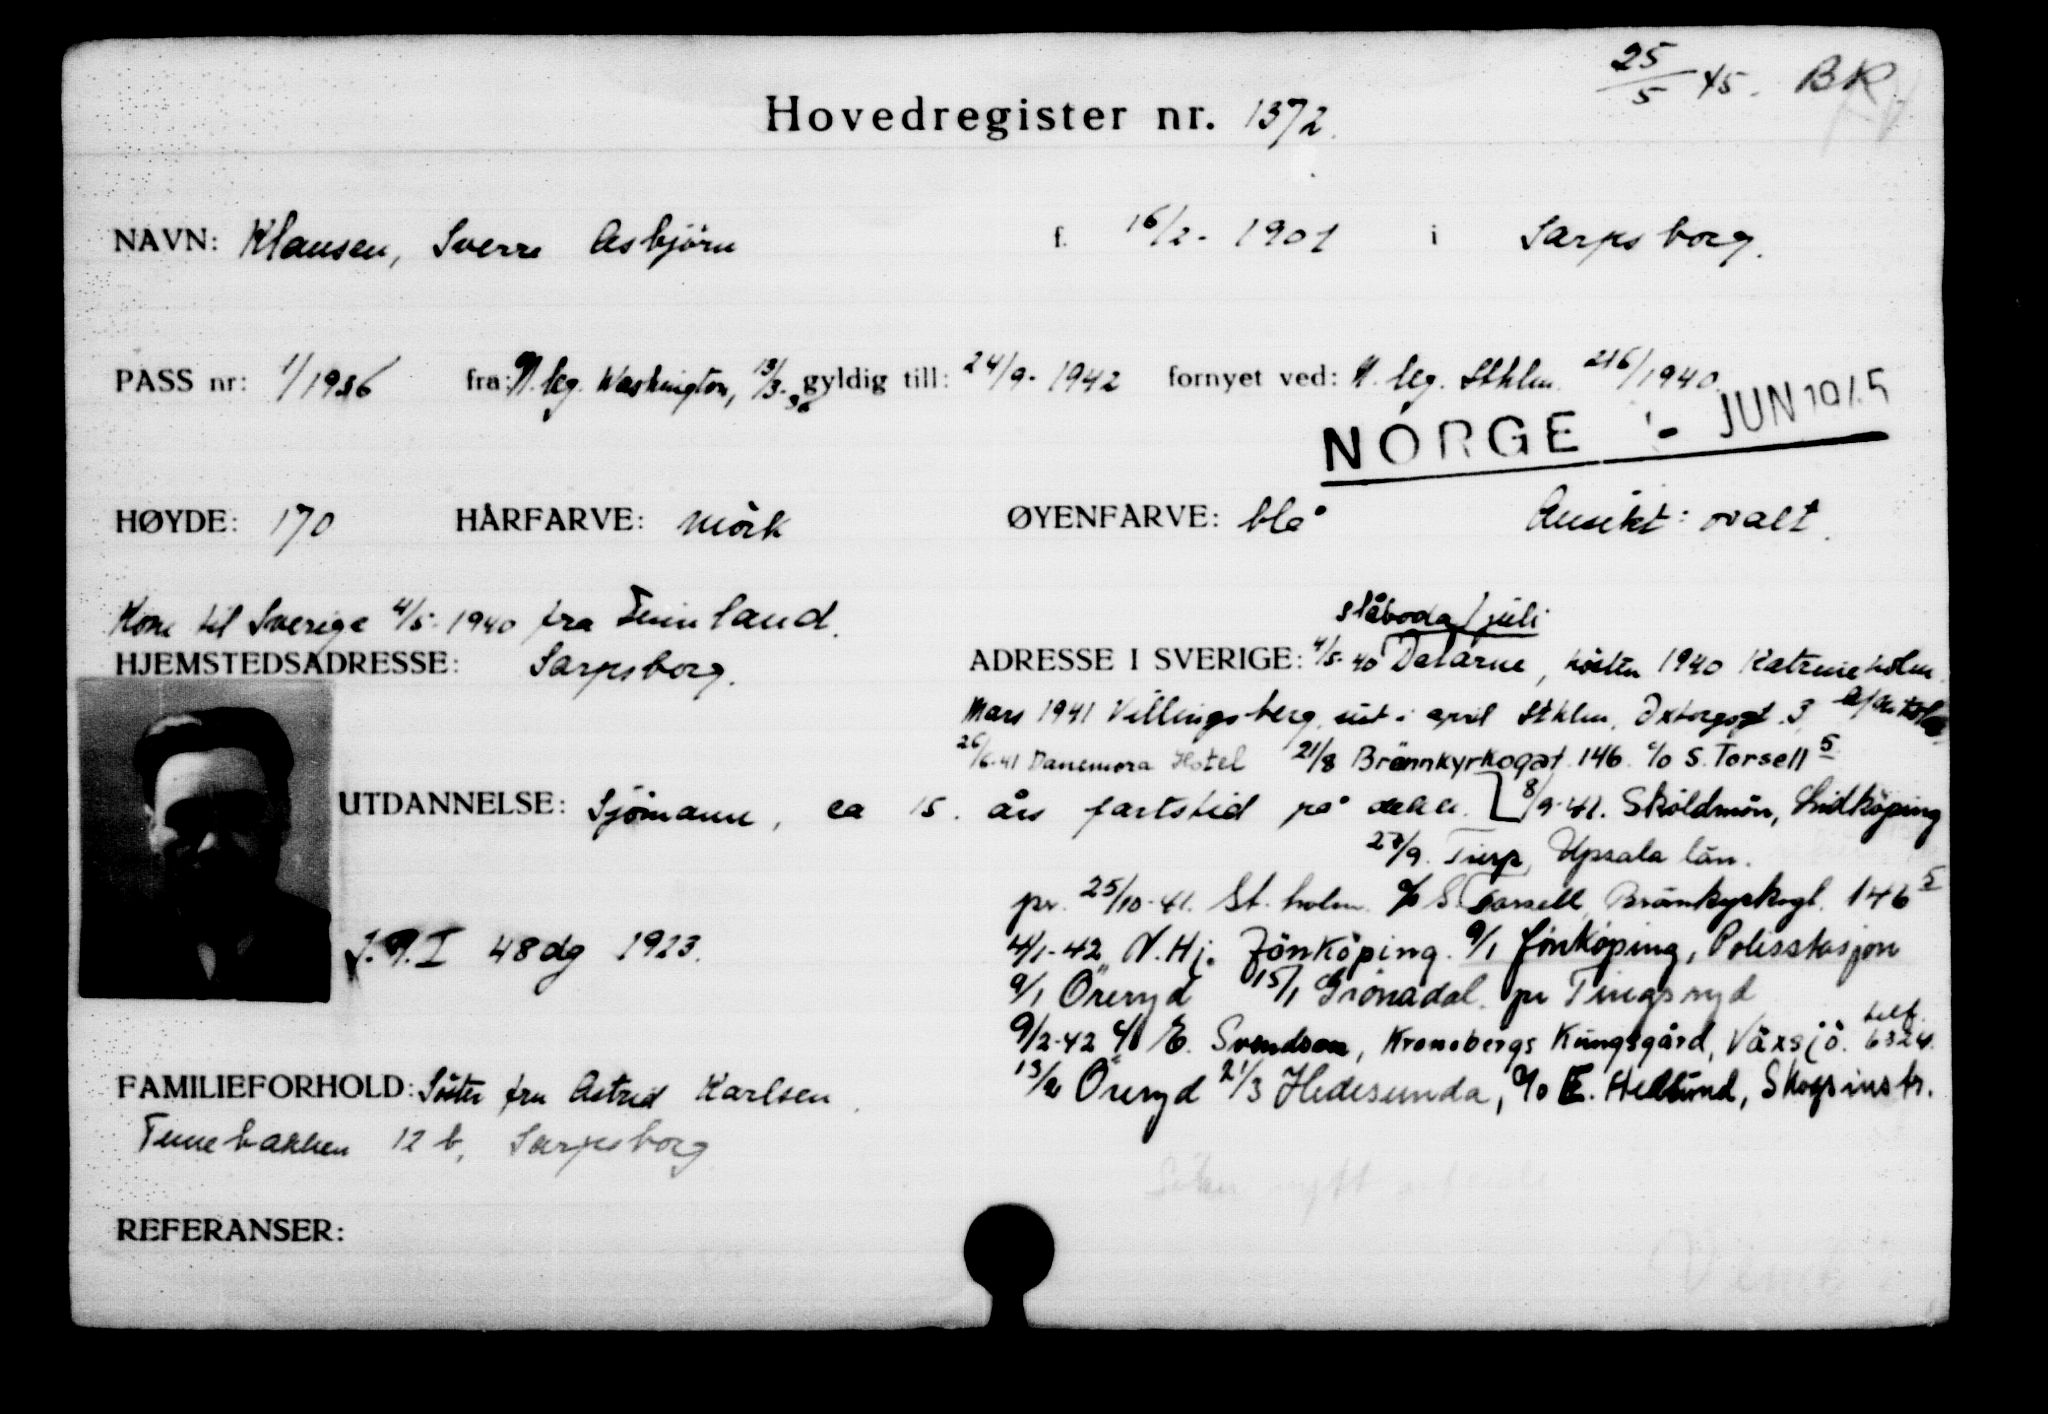 25/5 45. BK.
Hovedregister nr. 1372.
NAVN: Klausen, Sverre Asbjörn f. 16/2- 1901 i Sarpsborg.
PASS nr: 1/1936 fra: N. leg. Washington, 13/3-36 gyldig till: 24/9- 1942 fornyet ved: N. leg. Sthlm. 1940
NORGE - JUN 1945
HØYDE: 170 HÅRFARVE: mörk ØYENFARVE: blå Ansikt: ovalt.
Kom til Sverige 4/5- 1940 fra Finnland.
slåboda / juli
HJEMSTEDSADRESSE: Sarpsborg. ADRESSE I SVERIGE: 4/5- 40 Dalarne, hösten 1940 Katrineholm.
Mars 1941 Villingsberg, i april Sthlm. Oxtorgsgt. 3
26/6-41 Danemora Hotel 21/8 Brännkyrkogat. 146 c/o S. Torsell 5
UTDANNELSE: Sjömann, ca 15 års fartstid på dekk. 8/9-41. Sköldmön, Lidköping
27/9. Tierp, Upsala län.
pr. 25/10-41. St.holm. c/o S. Torsell, Bränkyrkogt. 146 5
J.N.I 48dg 1923. 4/1-42 N.Hj. Jönköping. 9/1 Jönköping, Polisstasjon
9/1 Öreryd 15/1 Grönadal. pr Tingsryd
9/2-42 c/o E. Svendsen, Kronobergs Kungsgård, Växsjö. telf. 6324.
FAMILIEFORHOLD: Söster fru Astrid Karlsen. 13/2 Öreryd 21/3 Hedesunda, c/o E. Hedlund, Skogsinstr.
Tunebakken 12 b, Sarpsborg
Söker nytt
REFERANSER: